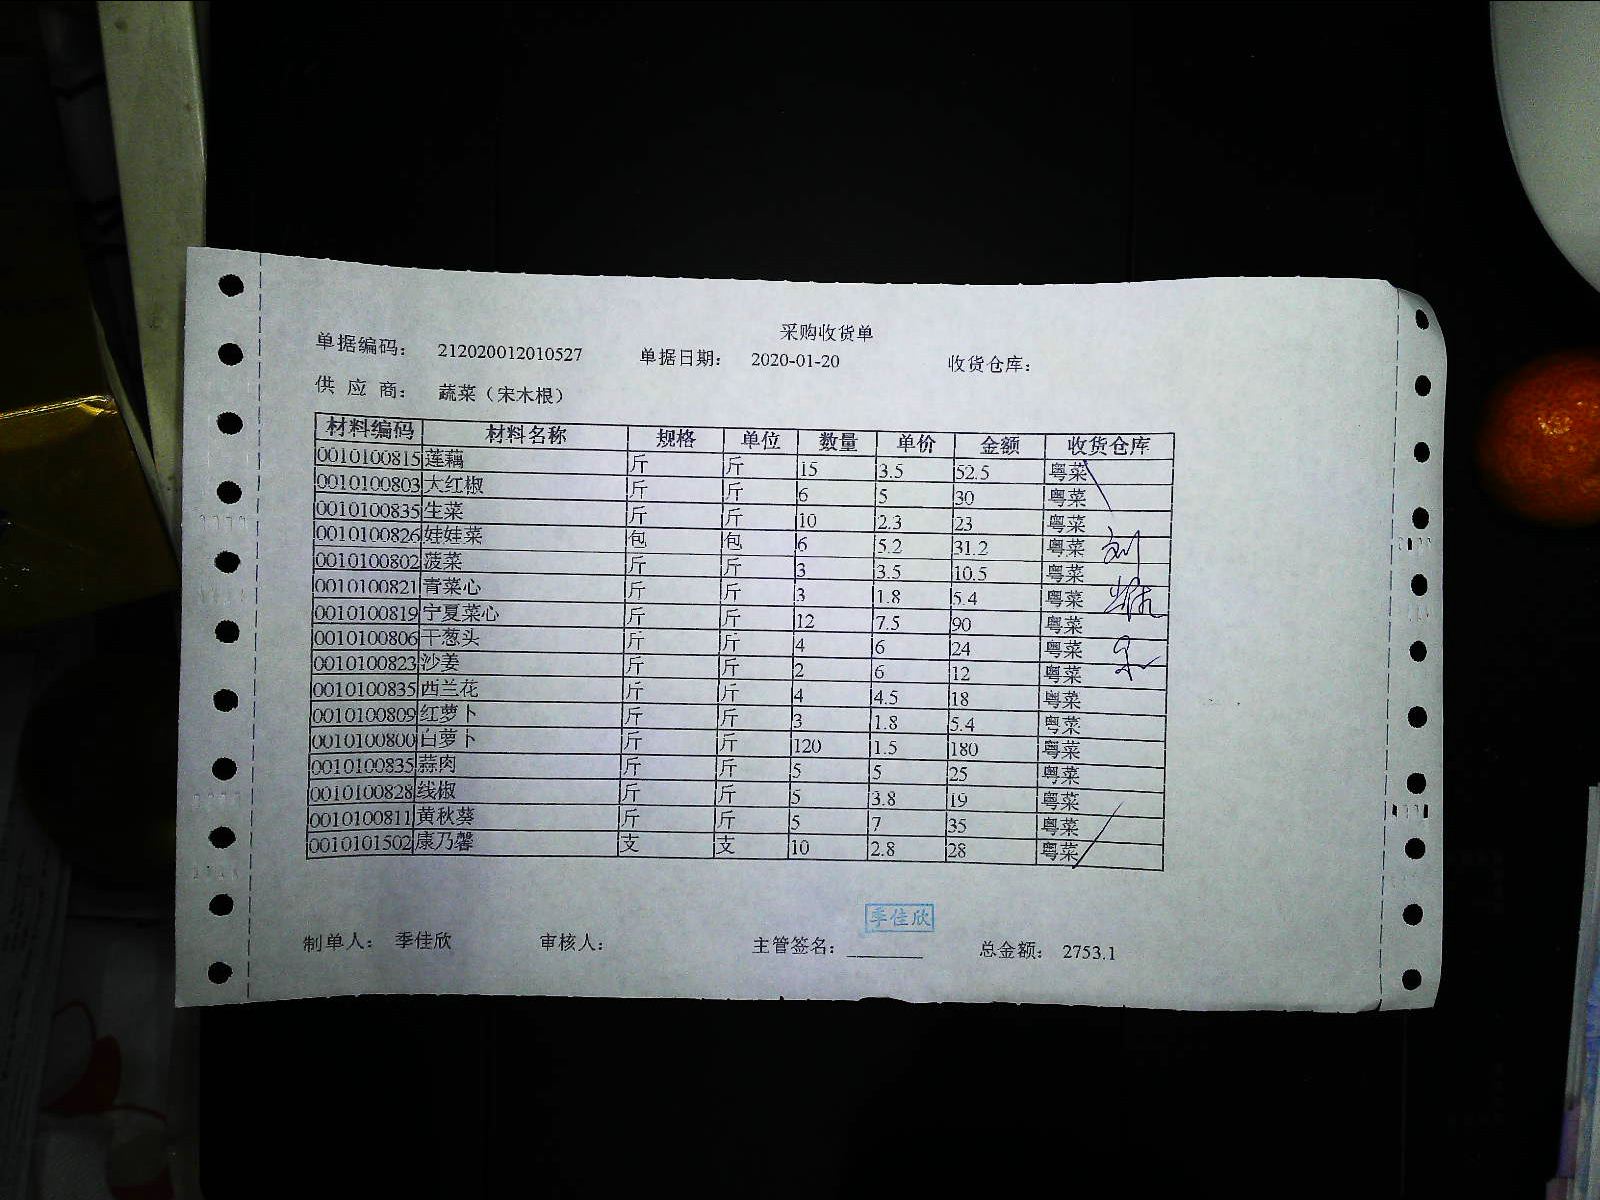 采购收货单
单据编码: 212020012010527 单据日期: 2020-01-20 收货仓库:
供 应 商: 蔬菜（宋木根）
材料编码 材料名称 规格 单位 数量 单价 金额 收货仓库
0010100815 莲藕 斤 斤 15 3.5 52.5 粤菜
0010100803 大红椒 斤 斤 6 5 30 粤菜
0010100835 生菜 斤 斤 10 2.3 23 粤菜
0010100826 娃娃菜 包 包 6 5.2 31.2 粤菜
0010100802 菠菜 斤 斤 3 3.5 10.5 粤菜
0010100821 青菜心 斤 斤 3 1.8 5.4 粤菜
0010100819 宁夏菜心 斤 斤 12 7.5 90 粤菜
0010100806 干葱头 斤 斤 4 6 24 粤菜
0010100823 沙姜 斤 斤 2 6 12 粤菜
0010100835 西兰花 斤 斤 4 4.5 18 粤菜
0010100809 红萝卜 斤 斤 3 1.8 5.4 粤菜
0010100800 白萝卜 斤 斤 120 1.5 180 粤菜
0010100835 蒜肉 斤 斤 5 5 25 粤菜
0010100828 线椒 斤 斤 5 3.8 19 粤菜
0010100811 黄秋葵 斤 斤 5 7 35 粤菜
0010101502 康乃馨 支 支 10 2.8 28 粤菜
季佳欣
制单人: 季佳欣 审核人: 主管签名: 总金额: 2753.1